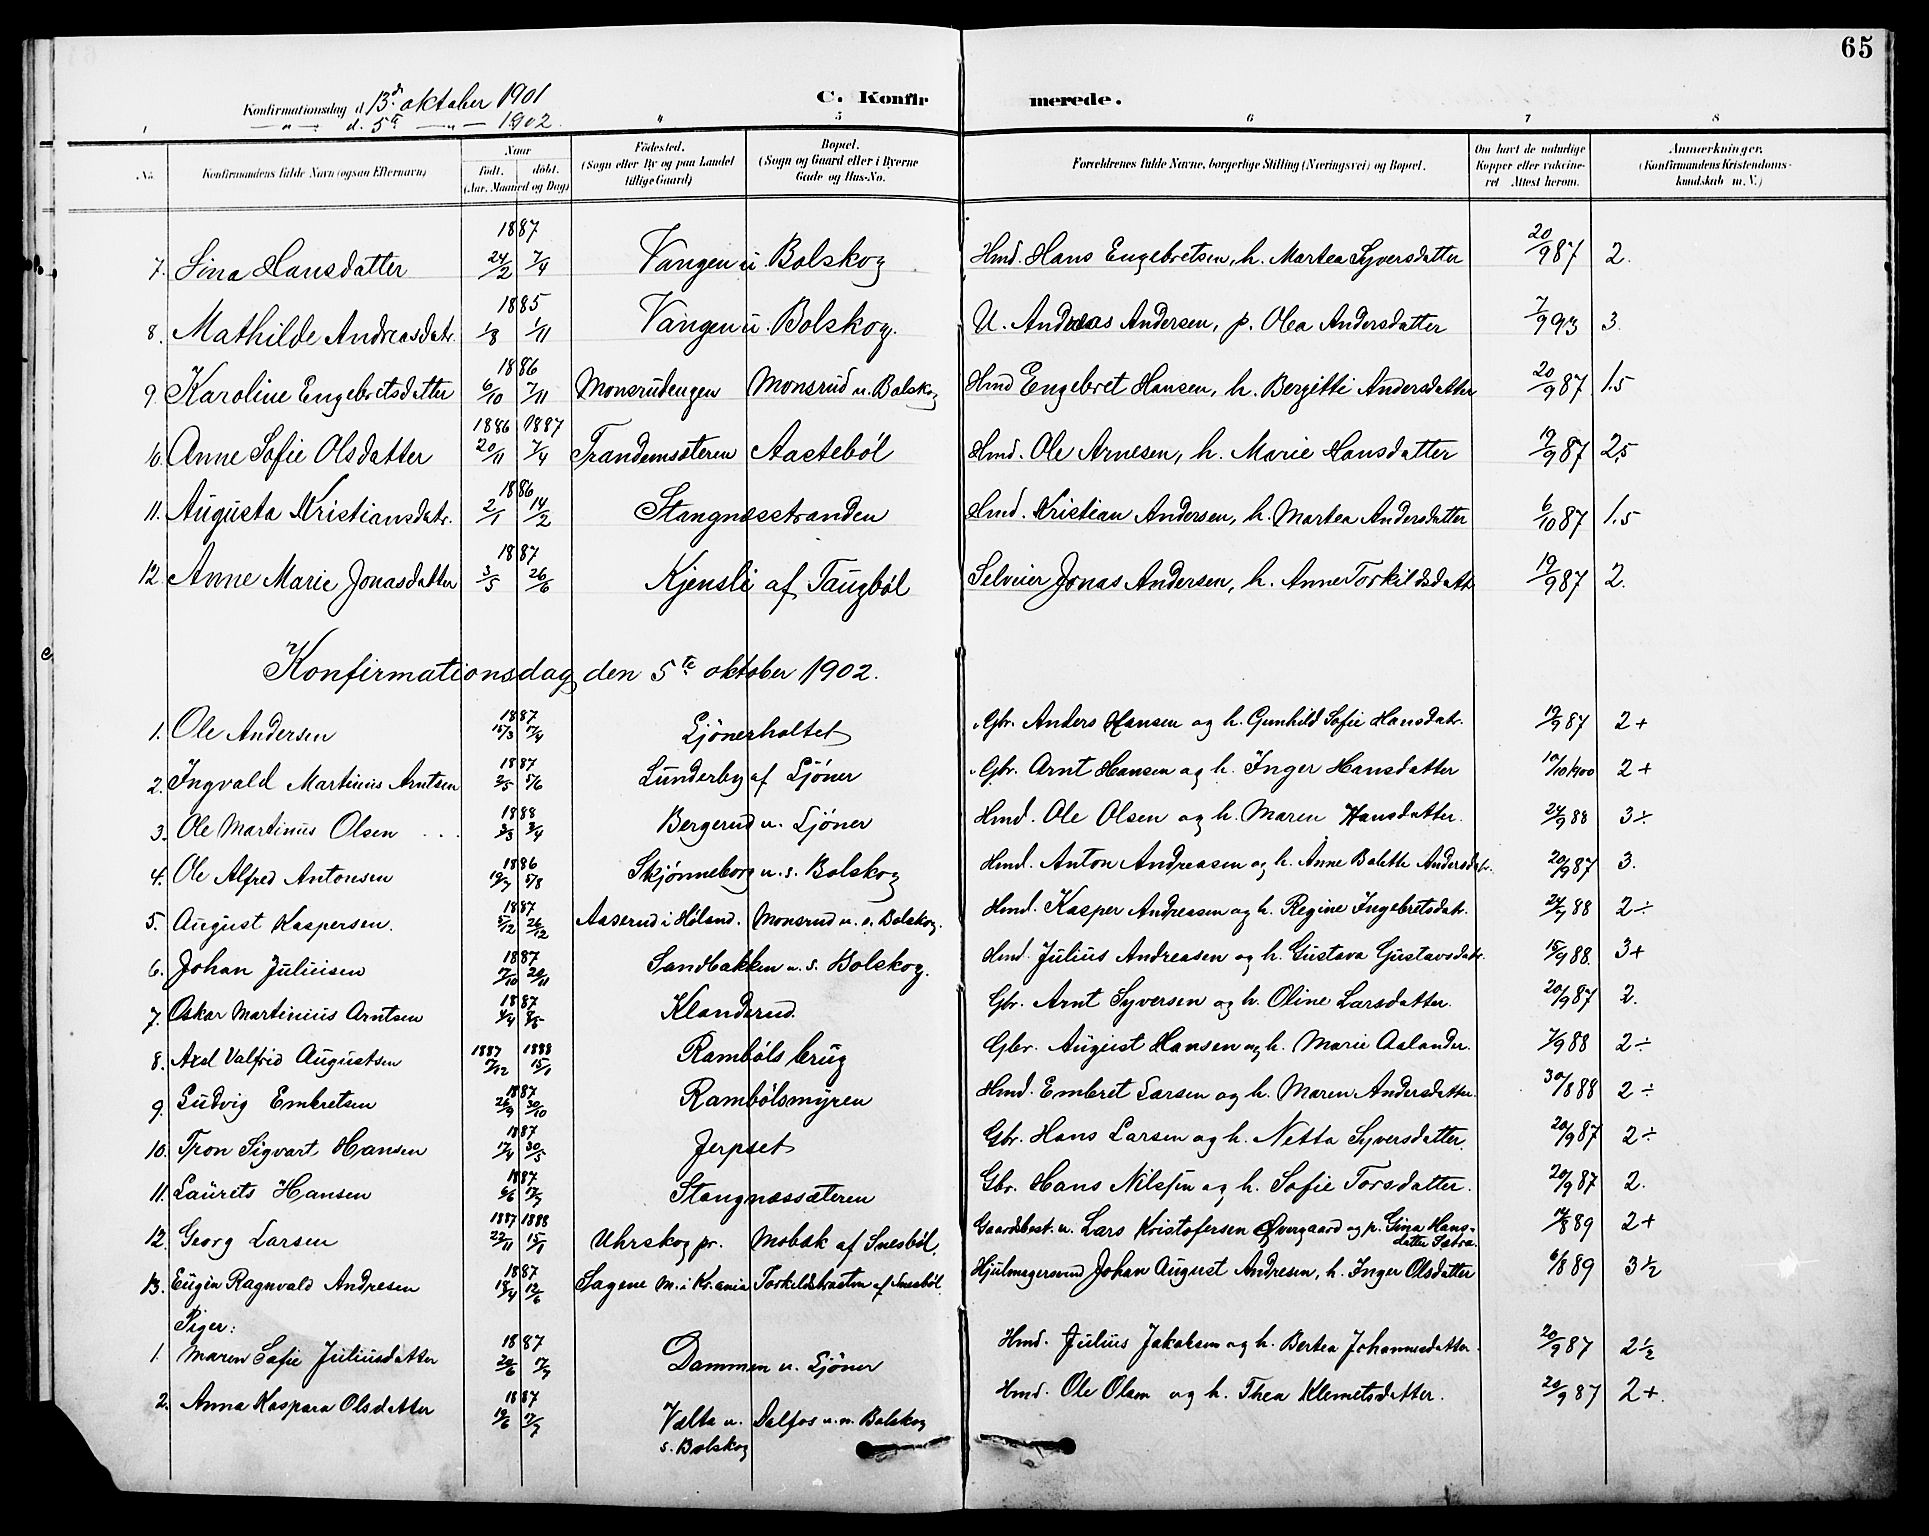 65
Konfirmationsdag d 13de oktober 1901
— " — d. 5te — " — 1902.
C. Konfirmerede.
1 4 5 6 7 8
No. Konfirmandens fulde Navn (ogsaa Efternavn) Naar födt. döbt. (Aar, Maaned og Dag) Födested. (Sogn eller By og paa Landet tillige Gaard) Bopæl. (Sogn og Gaard eller i Byerne Gade og Hus-No. Forældrenes fulde Navne, borgerlige Stilling (Næringsvei) og Bopæl. Om havt de naturlige Kopper eller vaksineret Attest herom. Anmerkninger. (Konfirmandens Kristendomskundskab m. V.)
1887
7. Lina Hansdatter 24/2 7/4 Vangen u. Bolskog Hmd. Hans Engebretsen, h. Martea Syversdatter 20/9 87 2.
1885
8. Mathilde Andreasdatr. 1/8 1/11 Vangen u. Bolskog. U. Andreas Andersen, p. Olea Andersdatter 7/9 93 3.
1886
9. Karoline Engebretsdatter 6/10 7/11 Monsrudengen Monsrud u. Bolskog Hmd Engebret Hansen, h. Bergitte Andersdatter 20/9 87 1.5
1886 1887
10. Anne Sofie Olsdatter 20/11 7/4 Trandemsæteren Aasteböl Hmd. Ole Arnesen, h. Marie Hansdatter 19/9 87 2,5
1886
11. Augusta Kristiansdatr. 2/1 14/2 Stangnæsstranden Hmd. Kristian Andersen, h. Martea Andersdatter 6/10 87 1.5
1887
12. Anne Marie Jonasdatter 3/5 26/6 Kjensli af Taugböl Selveier Jonas Andersen, h. Anne Torkildsdatt 19/9 87 2.
Konfirmationsdag den 5te oktober 1902.
1887
1. Ole Andersen 15/3 17/4 Ljönerholtet Gbr. Anders Hansen og h. Gunhild Sofie Hansdatr. 19/9 87 2+
1887
2. Ingvald Martinius Arntsen 2/5 5/6 Lunderby af Ljöner Gbr. Arnt Hansen og h. Inger Hansdatter 10/10 1900 2+
1888
3. Ole Martinus Olsen 2/3 2/4 Bergerud u. Ljöner Hmd. Ole Olsen og h. Maren Hansdatter. 24/9 88 3÷
1886
4. Ole Alfred Antonsen 19/7 5/8 Skjönneborg u. s. Bolskog Hmd. Anton Andreasen og h. Anne Bolette Andersdatr. 20/9 87 3.
1887
5. August Kaspersen. 5/12 26/12 Aaserud i Höland. Monsrud u. s. Bolskog. Hmd. Kasper Andreasen og h. Regine Ingebretsdatr. 24/9 88 2÷
1887
6. Johan Juliusen 17/10 20/11 Sandbakken u. s. Bolskog. Hmd. Julius Andreasen og h. Gustava Gustavsdatr. 15/9 88. 3+
1887
7. Oskar Martinius Arntsen 4/4 8/5 Klanderud. Gbr. Arnt Syversen og h. Oline Larsdatter. 20/9 87 2.
1887 1888
8. Axel Valfrid Augustsen 17/12 15/1 Rambölsbrug Gbr. August Hansen og h. Marie Aslander. 7/9 88 2÷
1887
9. Ludvig Embretsen 26/9 30/10 Rambölsmyren Hmd. Embret Larsen og h. Maren Andersdatter. 30/8 88 2÷
1887
10. Tron Sigvart Hansen 17/4 30/5 Jerpset Gbr. Hans Larsen og h. Netta Syversdatter. 20/9 87 2÷
1887
11. Laurits Hansen 6/6 17/7 Stangnæssæteren Gbr. Hans Nilssen og h. Sofie Torsdatter. 20/9 87 2.
1887 1888
12. Georg Larsen 22/11 15/1 Uhrskog pr. Mobæk af Snesböl. Gaardsbest. u. Lars Kristofersen Övergaard og p. Gina Hans-
datter Sætra. 14/8 89 2+
1887
13. Eugen Ragnvald Andresen 18/4 12/6 Sagene M. i Kr.ania Torkildsbraaten af Snesböl. Hjulmagersvend Johan August Andresen, h. Inger Olsdatter 6/8 89 3½
Piger:
1887
1. Maren Sofie Juliusdatter 20/6 17/7 Dammen u. Ljöner Hmd. Julius Jakobsen og h. Bertea Johannesdatter. 20/9 87 2½
1887
2. Anna Kaspara Olsdatter 19/6 17/7 Vælta u. Dalfos u. n. Bolskog Hmd. Ole Olsen og h. Thea Klemetsdatter. 20/9 87 2+.
s. Bolskog